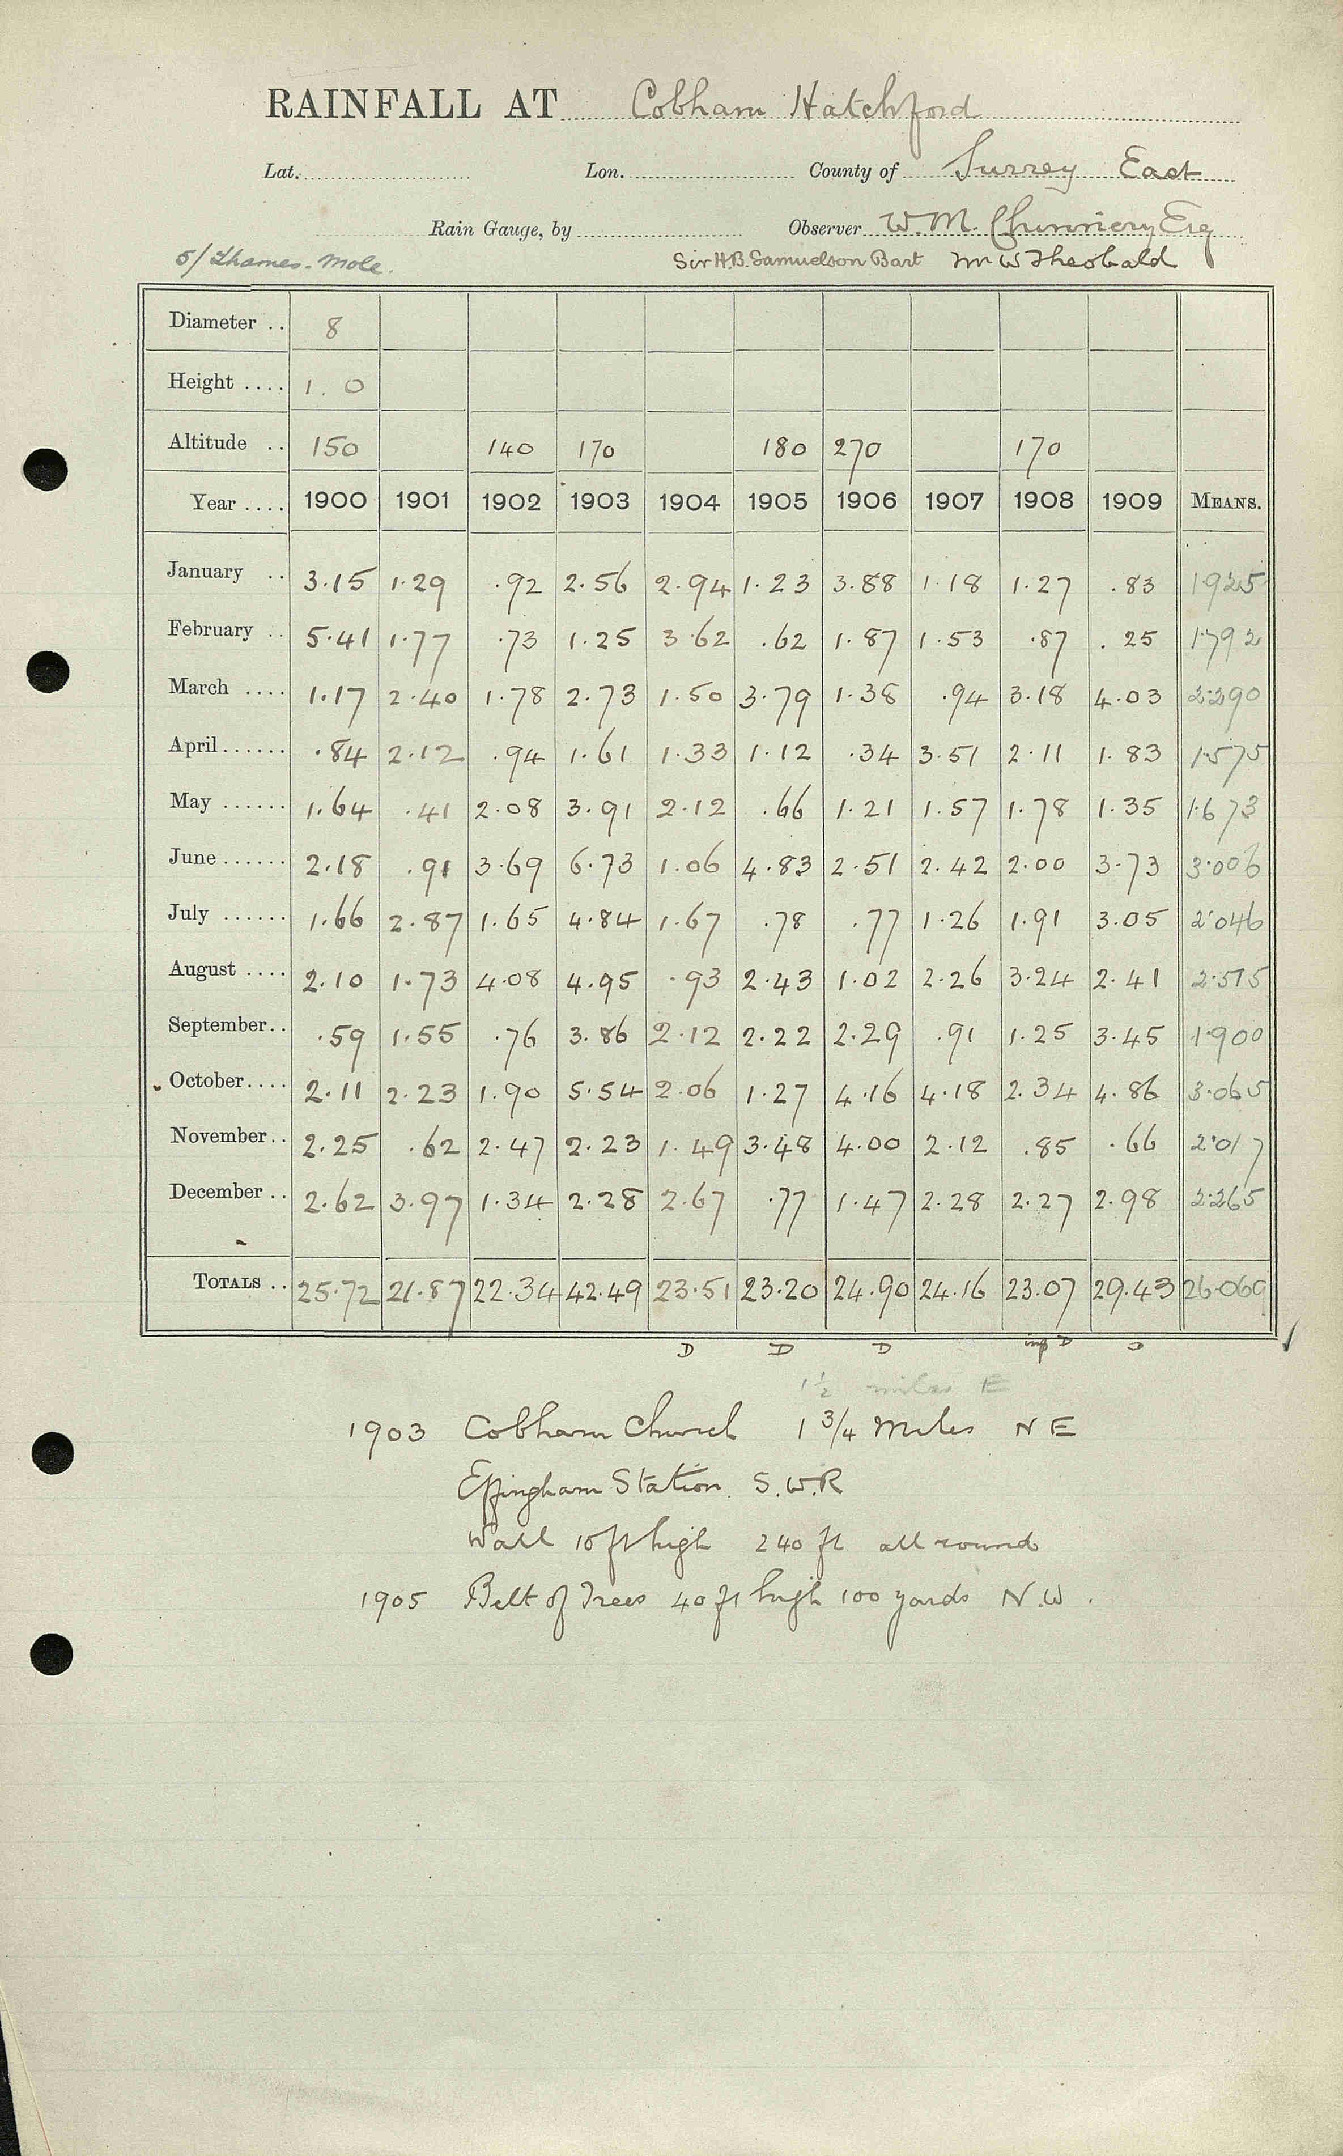 RAINFALL AT Cobham Hatchford
Lat. Lon. County of Surrey East
Rain Gauge, by Observer W. M. Chinnery Esq
5/ Thames-Mole. Sir H.B. Samuelson Bart Mr W Theobald
Diameter .. 8
Height .... 1. 0
Altitude .. 150 140 170 180 270 170
Year .... 1900 1901 1902 1903 1904 1905 1906 1907 1908 1909 MEANS.
January .. 3.15 1.29 .92 2.56 2.94 1.23 3.88 1.18 1.27 .83 1925
February .. 5.41 1.77 .73 1.25 3.62 .62 1.87 1.53 .87 .25 1.792
March .... 1.17 2.40 1.78 2.73 1.50 3.79 1.38 .94 3.18 4.03 2.290
April...... .84 2.12 .94 1.61 1.33 1.12 .34 3.51 2.11 1.83 1.575
May ...... 1.64 .41 2.08 3.91 2.12 .66 1.21 1.57 1.78 1.35 1.673
June ...... 2.18 .91 3.69 6.73 1.06 4.83 2.51 2.42 2.00 3.73 3.006
July ...... 1.66 2.87 1.65 4.84 1.67 .78 .77 1.26 1.91 3.05 2.046
August .... 2.10 1.73 4.08 4.95 .93 2.43 1.02 2.26 3.24 2.41 2.515
September.. .59 1.55 .76 3.86 2.12 2.22 2.29 .91 1.25 3.45 1.900
October.... 2.11 2.23 1.90 5.54 2.06 1.27 4.16 4.18 2.34 4.86 3.065
November.. 2.25 .62 2.47 2.23 1.49 3.48 4.00 2.12 .85 .66 2.017
December .. 2.62 3.97 1.34 2.28 2.67 .77 1.47 2.28 2.27 2.98 2.265
TOTALS .. 25.72 21.87 22.34 42.49 23.51 23.20 24.90 24.16 23.07 29.43 26.069
D D D imp D D
1½ miles E
1903 Cobham Church 1 3/4 miles NE
Effingham Station. S.W.R
Wall 10 ft high 240 ft all round
1905 Belt of Trees 40 ft high 100 yards N.W.